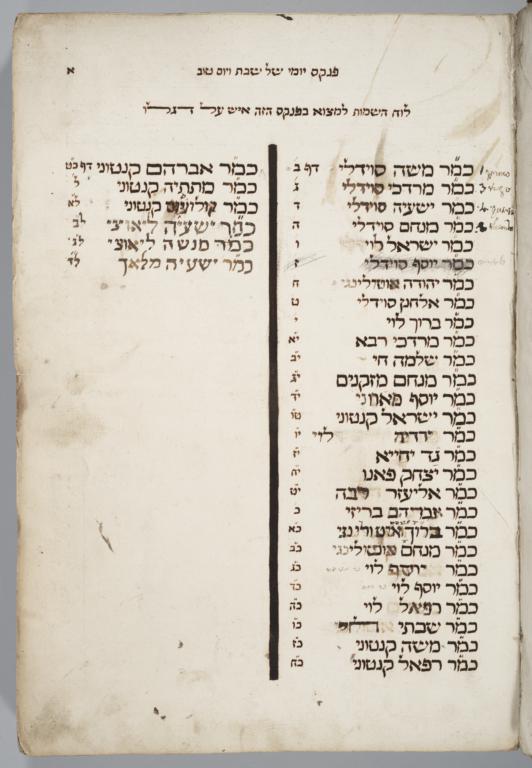 פנקס יומי של שבת ויום טוב
א
לוח השמות למצוא בפנקס הזה איש על דגלו
כמ״ר משה סוידלי דף ב
כמ״ר מרדכי סוידלי ג
כמ״ר ישעיה סוידלי ד
כמ״ר מנחם סוידלי ה
כמ״ר ישראל לוי ו
כמ״ר יוסף סוידלי ז
כמ״ר יהודה ח
כמ״ר אלחנן סוידלי ט
כמ״ר ברוך לוי י
כמ״ר מרדכי רבא יא
כמ״ר שלמה חי יב
כמ״ר מנחם מזקנים יג
כמ״ר יוסף יד
כמ״ר ישראל קנטוני טו
כמ״ר ידידיה לוי יו
כמ״ר גד יחייא יז
כמ״ר יצחק פאנו יח
כמ״ר אליעזר רבה יט
כמ״ר אברהם בריזי כ
כמ״ר ברוך כא
כמ״ר מנחם כב
כמ״ר יוסף לוי כג
כמ״ר יוסף לוי כד
כמ״ר רפאל לוי כה
כמ״ר שבתי כו
כמ״ר משה קנטוני כז
כמ״ר רפאל קנטוני כח
כמ״ר אברהם קנטוני דף כט
כמ״ר מתתיה קנטוני ל
כמ״ר קנטוני לא
כמ״ר ישעיה ליאוצי לב
כמ״ר מנשה ליאוצי לג
כמ״ר ישעיה מלאך לד